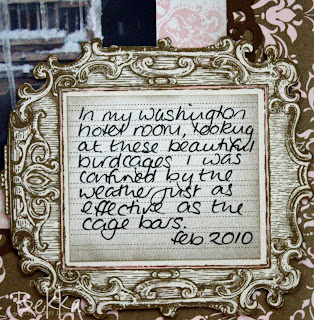 In my washington
hotel room, looking
at these beautiful
birdcages I was
confined by the
weather just as
effective as the
cage bars.
feb 2010
Bekka